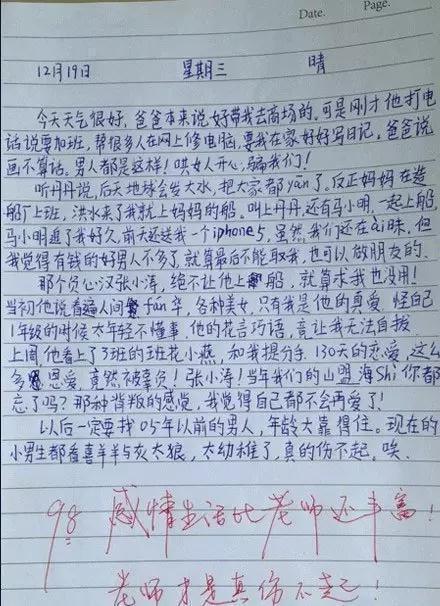 Date. Page.
12月19日 星期三 晴
今天天气很好,爸爸本来说好带我去商场的,可是刚才他打电
话说要加班,帮很多人在网上修电脑,要我在家好好写日记,爸爸说
画不算话。男人都是这样!哄女人开心,骗我们!
听丹丹说,后天地球会发大水,把大家都yān了。反正妈妈在造
船厂上班,洪水来了我就上妈妈的船。叫上丹丹,还有马小明,一起上船,
马小明追了我好久,前天还送我一个iphone5,虽然我们还在ai昧,但
我觉得有钱的好男人不多了,就算最后不能取我,也可以做朋友的。
那个负心汉张小涛,绝不让他上船,就算求我也没用!
当初他说看遍人间fán华,各种美女,只有我是他的真爱,怪自己
1年级的时候太年轻不懂事,他的花言巧语,竟让我无法自拔
上周,他看上了3班的班花小燕,和我提分手,130天的恋爱,这么
多恩爱,竟然被辜负!张小涛!当年我们的山盟海Shi你都
忘了吗?那种背叛的感觉,我觉得自己都不会再爱了!
以后一定要找05年以前的男人,年龄大靠得住。现在的
小男生都看喜羊羊与灰太狼,太幼稚了,真的伤不起,唉、
98 感情生活比老师还丰富!
老师才是真伤不起!